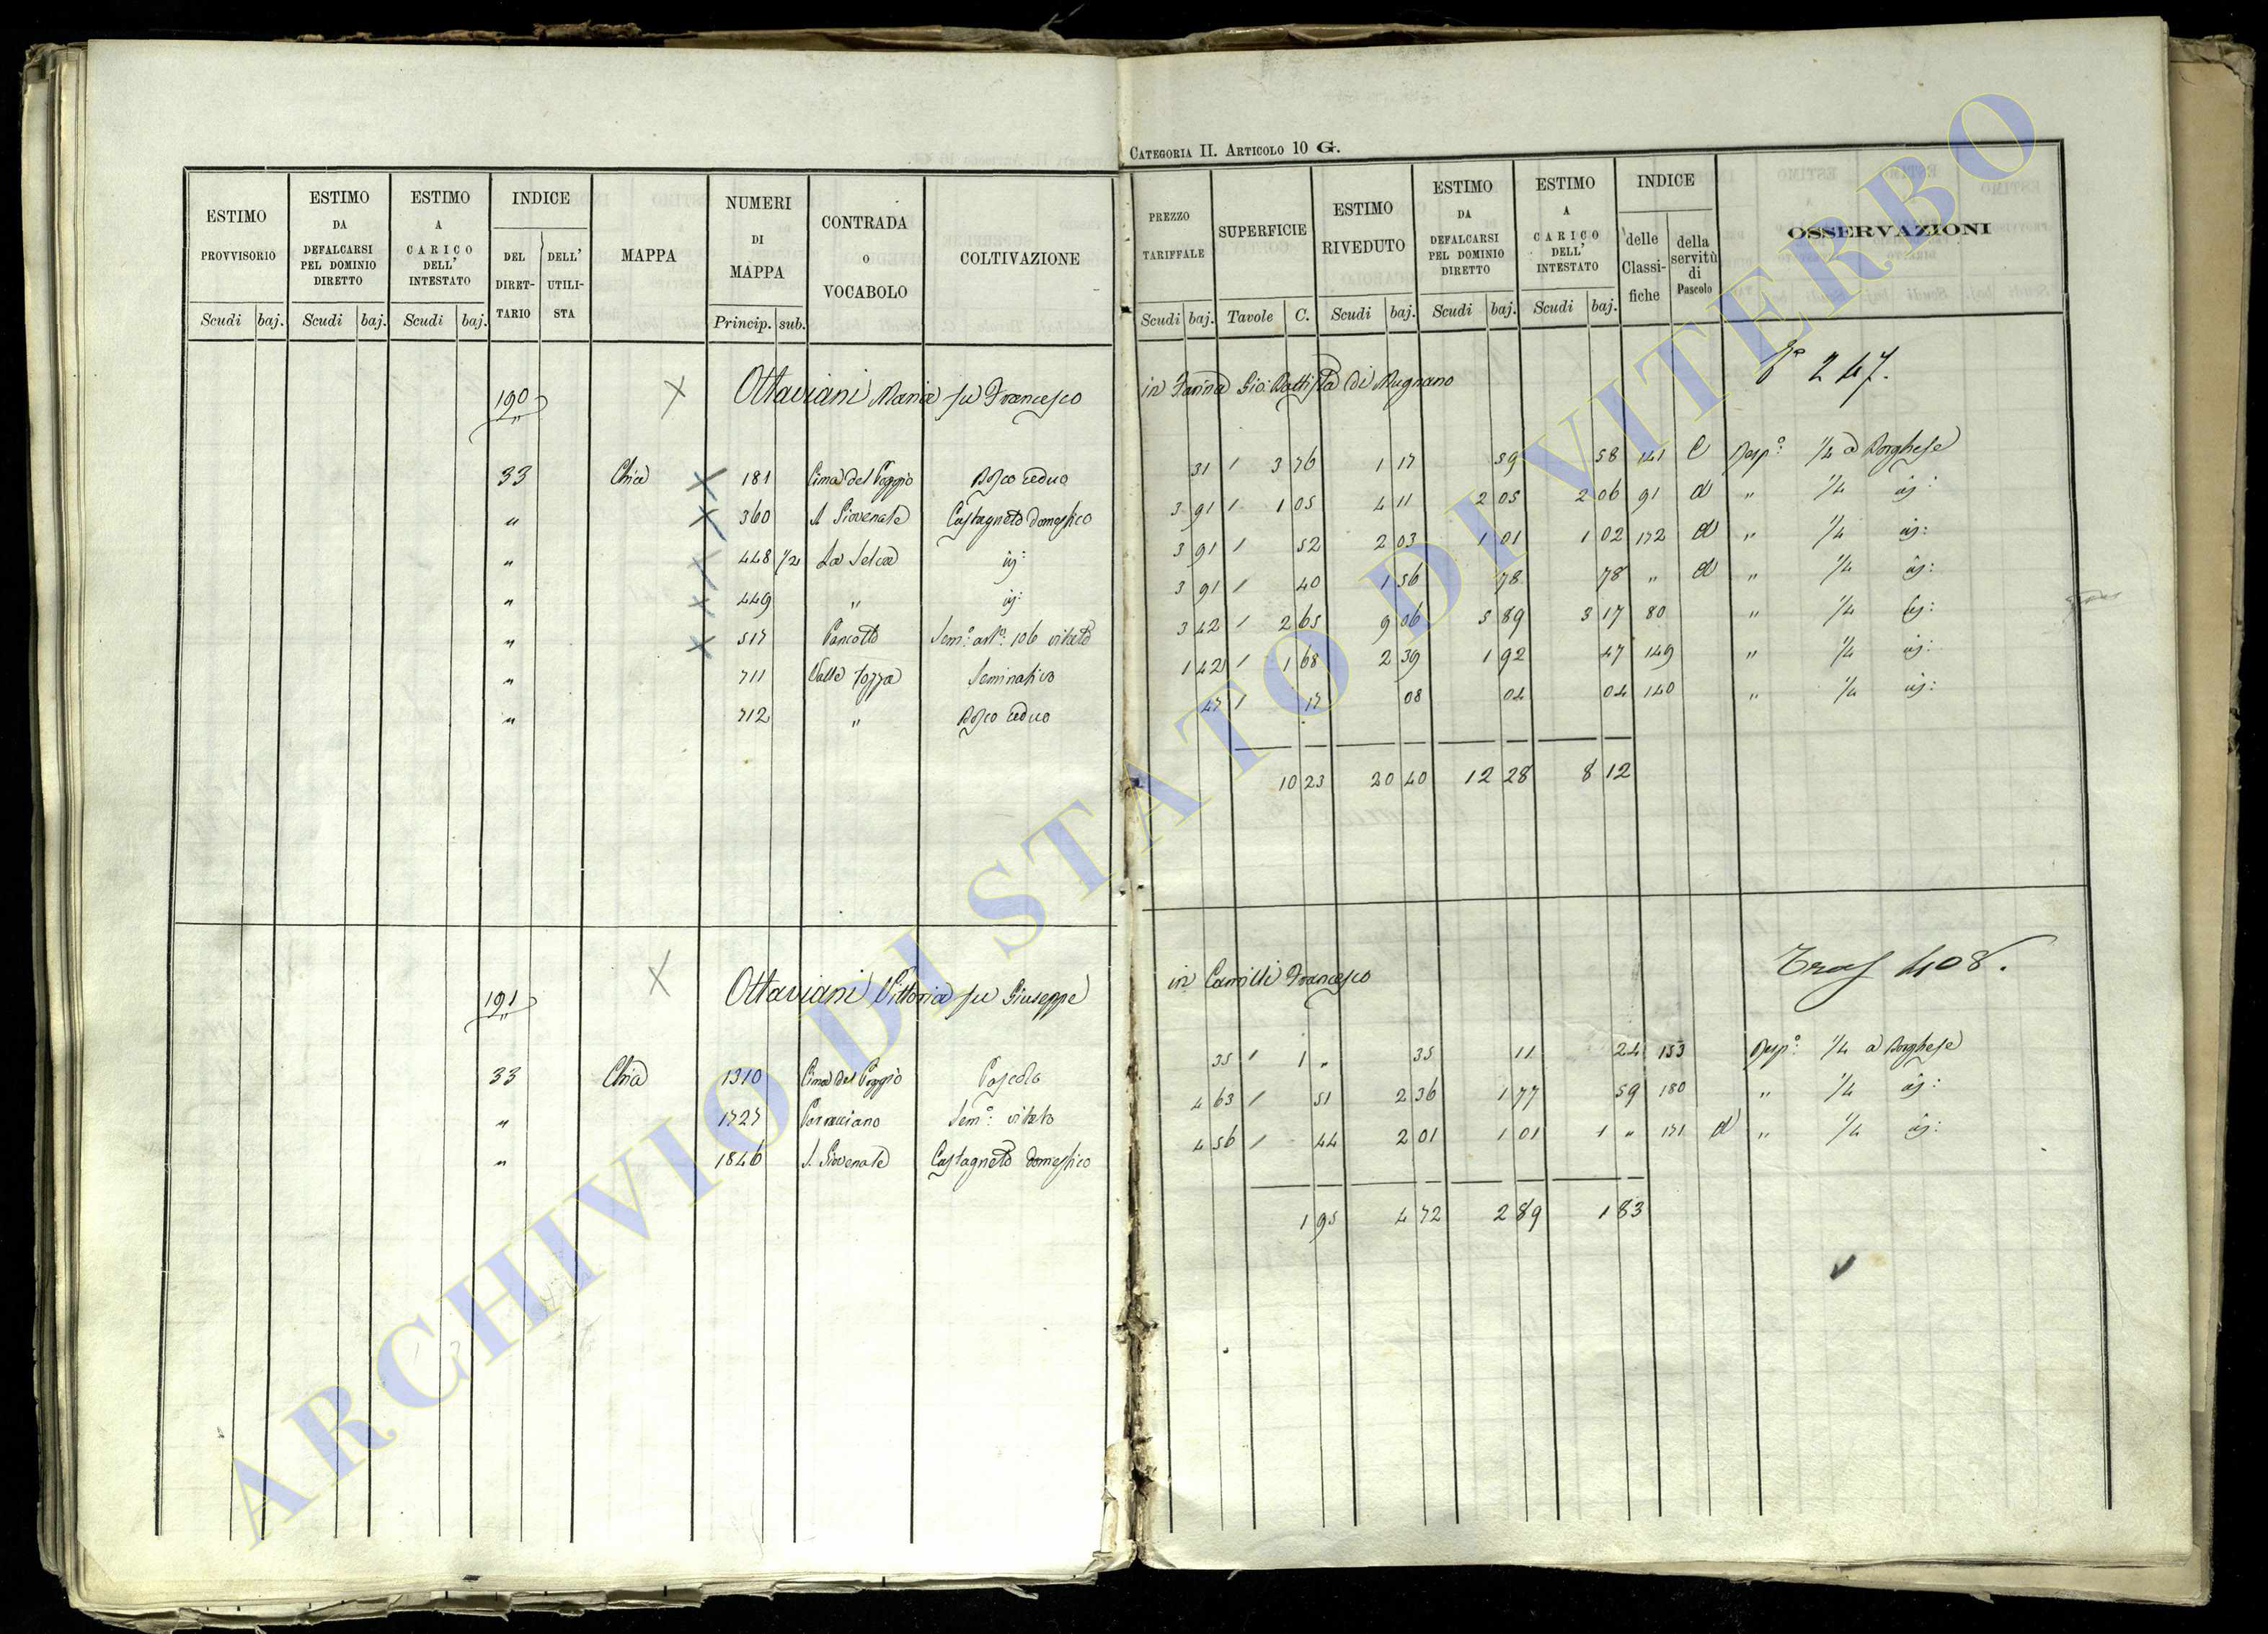 CATEGORIA II. ARTICOLO 10 G.
ESTIMO PROVVISORIO
ESTIMO DA DEFALCARSI PEL DOMINIO DIRETTO
ESTIMO A CARICO DELL' INTESTATO
INDICE
DEL DIRETTARIO
DELL' UTILISTA
MAPPA
NUMERI DI MAPPA
CONTRADA O VOCABOLO
COLTIVAZIONE
PREZZO TARIFFALE
SUPERFICIE
ESTIMO RIVEDUTO
ESTIMO DA DEFALCARSI PEL DOMINIO DIRETTO
ESTIMO A CARICO DELL' INTESTATO
INDICE
delle Classifiche
della servitù di Pascolo
OSSERVAZIONI
Scudi baj. Scudi baj. Scudi baj. Princip. sub. Scudi baj. Tavole C. Scudi baj. Scudi baj. Scudi baj.
190 Ottaviani Maria fu Francesco in Farina Gio: Battista di Mugnano 247.
33 Chia 181 Cima del Poggio Bosco ceduo 31 / 3 76 1 17 59 58 141 C Risp: 1/4 a Borghese
" 360 S Giovenale Castagneto domestico 3 91 / 1 05 4 11 2 05 2 06 91 d " 1/4 id:
" 448 1/2 La Selva id: 3 91 / 52 2 03 1 01 1 02 172 d " 1/4 id:
" 449 " id: 3 91 / 40 1 56 78 78 " d " 1/4 id:
" 517 Pancotto Sem: 106 vitato 3 42 / 2 65 9 06 5 89 3 17 80 " 1/4 id:
" 711 Valle Fozza Seminativo 1 42 / 1 68 2 39 1 92 47 149 " 1/4 id:
" 712 " Bosco ceduo 47 / 17 08 04 04 140 " 1/4 id:
10 23 20 40 12 28 8 12
191 Ottaviani Vittoria fu Giuseppe in Camilli Francesco Tras 408.
33 Chia 1310 Cima del Poggio Pascolo 35 / 1 " 35 11 24 153 Risp: 1/4 a Borghese
" 1727 Sem: vitato 4 63 / 51 2 36 1 77 59 180 " 1/4 id:
" 1846 S. Giovenale Castagneto domestico 4 56 / 44 2 01 1 01 1 " 171 d " 1/4 id:
1 95 4 72 2 89 1 83
ARCHIVIO DI STATO DI VITERBO